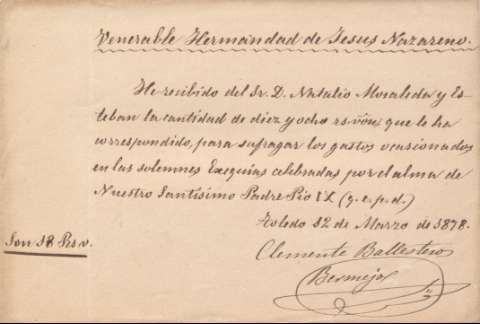 Venerable Hermandad de Jesus Nazareno.
He recibido del Sr. D. Natalio Moraleda y Es-
teban la cantidad de diez y ocho rs. vón. que le ha
correspondido, para sufragar los gastos ocasionados
en las solemnes Exequias celebradas por el alma de
Nuestro Santísimo Padre Pio IX (q. e. p. d.)
Toledo 12 de Marzo de 1878.
Son 18 Rs. v.
Clemente Ballestero
Bermejo